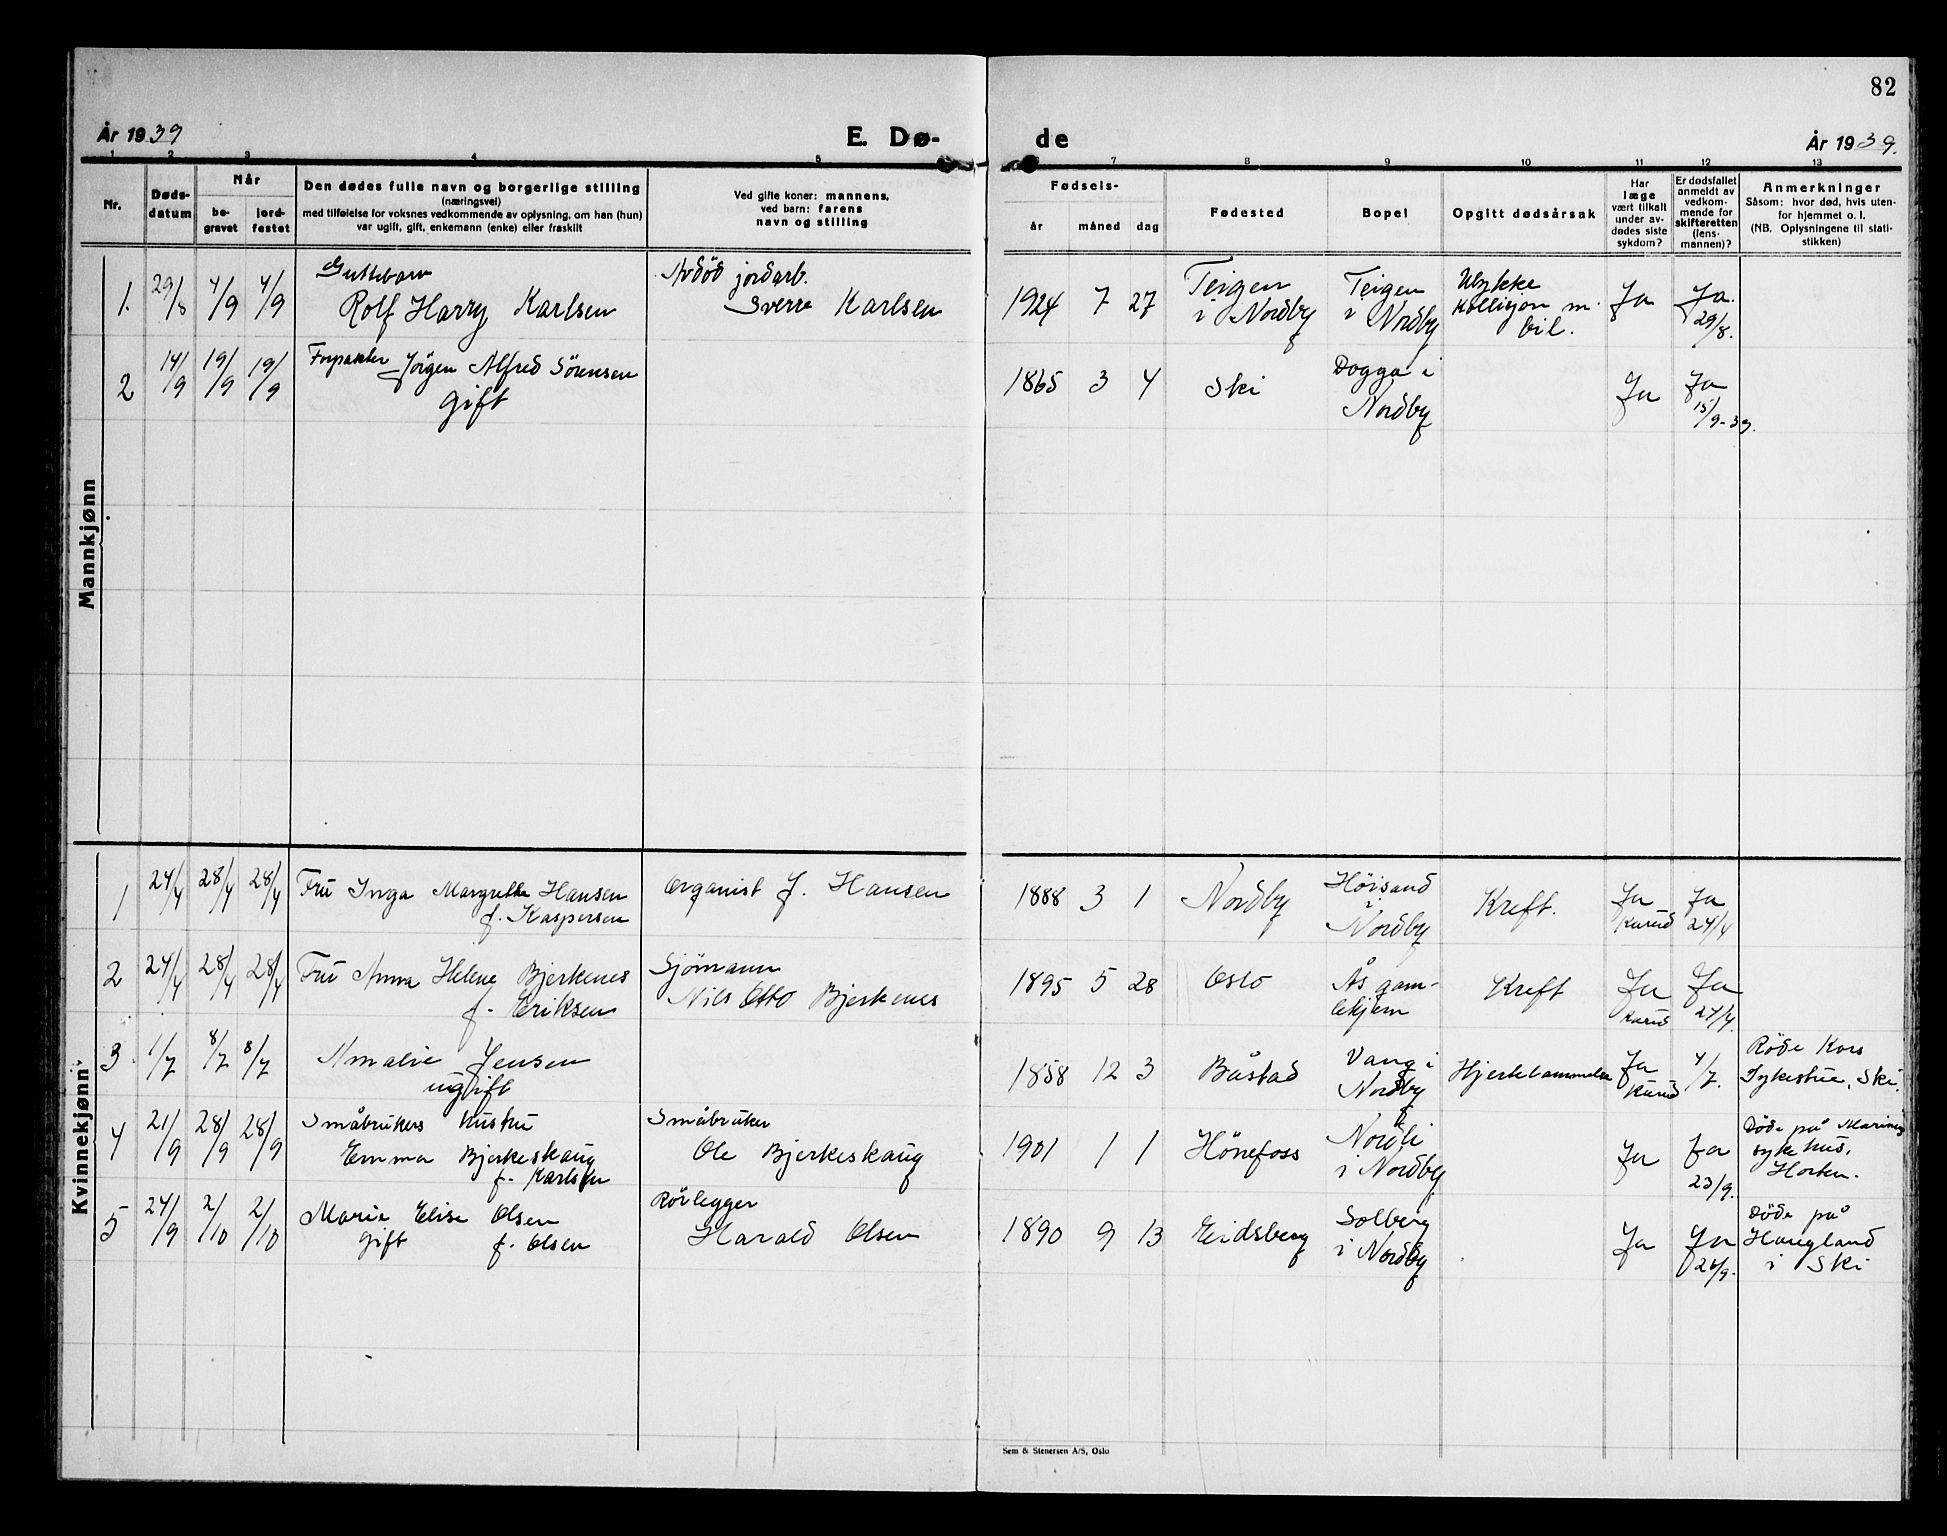 82
År 1939
E. Dø-
de
År 1939.
1 2 3 4 5 6 7 8 9 10 11 12 13
Nr.
Døds-
datum
Når
be-
gravet
jord-
festet
Den dødes fulle navn og borgerlige stilling
(næringsvei)
med tilføielse for voksnes vedkommende av oplysning, om han (hun)
var ugift, gift, enkemann (enke) eller fraskilt
Ved gifte koner: mannens,
ved barn: farens
navn og stilling
Fødsels-
år måned dag
Fødested
Bopel
Opgitt dødsårsak
Har
læge
vært tilkalt
under av-
dødes siste
sykdom?
Er dødsfallet
anmeldt av
vedkom-
mende for
skifteretten
(lens-
mannen)?
Anmerkninger
Såsom: hvor død, hvis uten-
for hjemmet o. l.
(NB. Oplysningene til stati-
stikken)
Mannkjønn
1. 29/8 4/9 4/9
Guttebarn
Rolf Harry Karlsen
Avdöd jordarb.
Sverre Karlsen
1924 7 27
Teigen
i Nordby
Teigen
i Nordby
Ulykke
Kollisjon m.
bil.
Ja
Ja.
29/8.
2 14/9 19/9 19/9
Forpakter Jörgen Alfred Sörensen
gift
1865 3 4
Ski
Dogga i
Nordby
Ja
Ja
15/9-39.
Kvinnekjønn
1 24/4 28/4 28/4
Fru Inga Margrethe Hansen
f. Kaspersen
Organist J. Hansen
1888 3 1
Nordby
Höisand
i
Nordby
Kreft.
Ja
Kurud
Ja
24/4
2 24/4 28/4 28/4
Fru Anna Helene Bjerkenes
f. Eriksen
Sjömann
Nils Otto Bjerkenes
1895 5 28
Oslo
Ås gam-
lehjem
Kreft
Ja
Kurud
Ja
24/4.
3 1/7 8/7 8/7
Amalie Jensen
ugift
1858 12 3
Båstad
Vang i
Nordby
Hjertelammelse
Ja
Kurud
4/7.
Röde Kors
Sykestue, Ski.
4 21/9 28/9 28/9
Småbrukers hustru
Emma Bjerkeskaug
f. Karlsen
Småbruker
Ole Bjerkeskaug
1901 1 1
Hönefoss
Nordli
i Nordby
Ja
Ja
23/9.
Döde på Marinens
sykehus,
Horten.
5 24/9 2/10 2/10
Marie Elise Olsen
gift f. Olsen
Rörlegger
Harald Olsen
1890 9 13
Eidsberg
Solberg
i Nordby
Ja
Ja
26/9.
Döde på
Haugland
i Ski
Sem & Stenersen A/S, Oslo